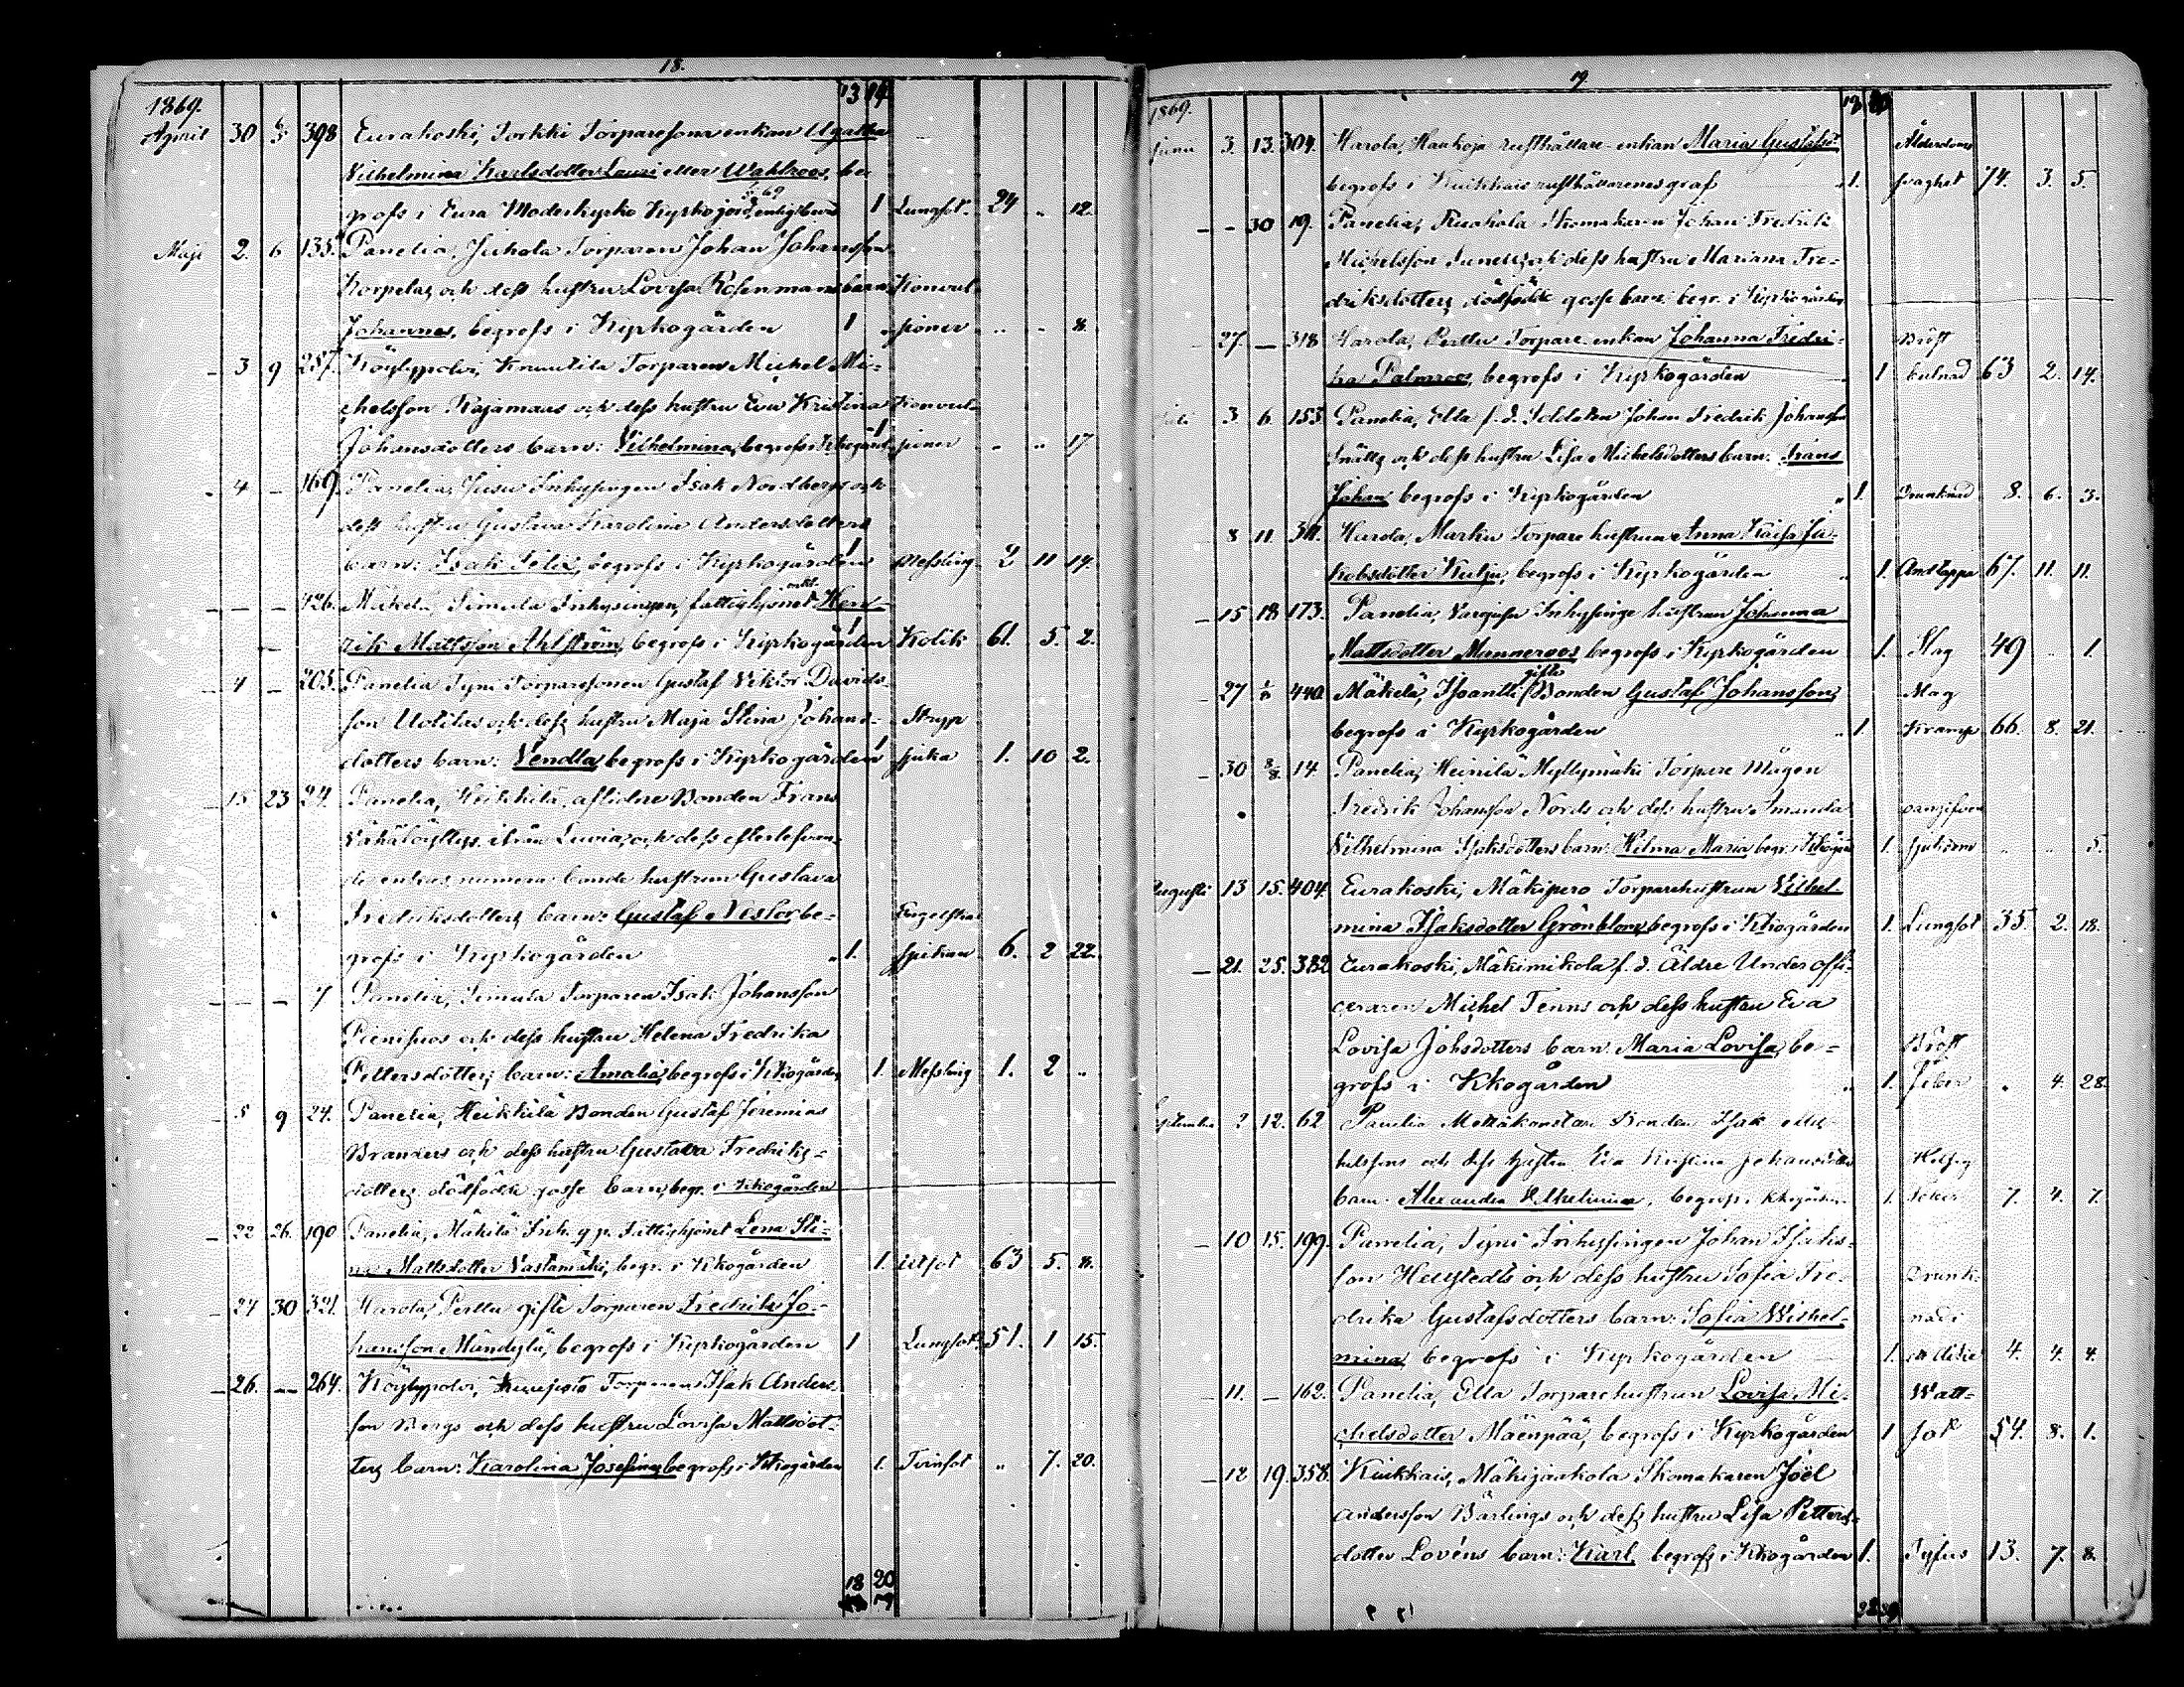 18.
1869. 13 14
April 30 6/5 398 Eurakoski, Torkki Torparesons enkan Agatha
Vilhelmina Karlsdotter Lauri eller Wahlroos, be-
grofs i Eura Moderkyrko Kyrkojord, enligt bevis 1 Lungsot. 24 " 12.
Maji 2. 6 135. Panelia, Juhola Torparen Johan Johansson
Korpelas och dess hustru Lovisa Rosenmans barn Konvul-
Johannes, begrofs i Kyrkogården 1 " sioner " " 8.
— 3 9 287. Köylypolvi, Knuutila Torparen Michel Mi-
chelsson Rajamaas och dess hustru Eva Kristina Konvul-
Johansdotters barn: Vilhelmina, begrofs i Kkogård. 1 sioner " " 17
— 4 — 169. Panelia, Jusu Inhysingen Isak Nordbergs och
dess hustru Gustava Karolina Andersdotters
barn: Isak Felix, begrofs i Kyrkogården 1 Messling 2 11 14.
— — — 426. Mäkelä, Simula Inhysingen, fattighjonet enkl. Hend-
rik Mattsson Ahlström, begrofs i Kyrkogården 1 Kolik 61. 5. 2.
— 4 — 205. Panelia Tyni Torparesonen Gustaf Viktor Davids-
son Uotilas och dess hustru Maja Stina Johans- Stryp
dotters barn: Vendla, begrofs i Kyrkogården 1 sjuka 1. 10 2.
— 15 23 24. Panelia, Heikkilä, aflidne Bonden Frans
från Luvia, och dess efterlefvan-
de enkas, numera bonde hustrun Gustava
Fredriksdotters barn: Gustaf Nestor be- Engelska
grofs i Kyrkogården " 1. sjukan 6. 2 22.
— — — 7 Panelia, Simula Torparen Isak Johansson
och dess hustru Helena Fredrika
Pettersdotters barn: Amalia, begrofs i Kkogården 1. Messling 1. 2 "
— 5 9 24. Panelia, Heikkilä Bonden Gustaf Jeremias
Branders och dess hustru Gustava Fredriks-
dotters dödfödde gosse barn, begr. i Kkogården
— 22 26. 190 Panelia, Mäkilä Inh. g.p. Fattighjonet Lena Sti-
na Mattsdotter Vastamäki, begr. i Kkogården 1. 63 5. 8.
— 24 30 321. Harola, Perttu gifte Torparen Fredrik Jo-
hansson Mändylä, begrofs i Kyrkogården 1 Lungsot. 51. 1 15.
— 26. — 264. Köylypolvi, Torparen Isak Anders-
son Bergs och dess hustru Lovisa Mattsdot-
ters barn: Karolina Josefina, begrofs i Kkogården 1. Tvinsot " 7. 20.
18 20
19.
1869.
Juni 3. 13. 304. Harola, Haukoja rusthållare-enkan Maria Gustafsd. Ålderdoms
begrofs i Kiukkais rusthållarenes graf " 1. svaghet 74. 3. 5.
— — 30 19. Panelia, Ruohola Skomakaren Johan Fredrik
Michelsson och dess hustru Mariana Fre-
driksdotters dödfödde gosse barn, begr. i Kyrkogården
27. — 318 Harola, Perttu Torpare-enkan Johanna Fredri- Bröst
ka Palmroos, begrofs i Kyrkogården 1 63 2. 14.
Juli 3. 6. 153. Panelia, Ella f. d. Soldaten Johan Fredrik Johansson
Snälls och dess hustru Lisa Michelsdotters barn: Frans
Johan begrofs i Kyrkogården " 1. Drunknad 8. 6. 3.
8 11. 311. Harola, Marku Torpare hustrun Anna Kaisa Ja-
kobsdotter Kulju, begrofs i Kyrkogården " 1. Andtäppa 67. 11. 11.
— 15 18 173. Panelia, Vargusu Inhysinge hustrun Johanna
Mattsdotter Manneroos begrofs i Kyrkogården 1. Slag 49 " 1.
— 27 440. Mäkelä, Isoantti gifte Bonden Gustaf Johansson, Mag
begrofs i Kyrkogården " 1. Kramp 66. 8. 21.
— 30 8/8 14. Panelia, Heinilä Myllymäki Torpare Mågen
Fredrik Johansson Nords och dess hustru Amanda
Vilhelmina Isaksdotters barn: Hilma Maria, begr. i Kkogår. 1. sjukdom " " 5.
Augusti 13 15. 404. Eurakoski, Mäkipero Torparehustrun Vilhel-
mina Isaksdotter Grönblom, begrofs i Kkogården 1. Lungsot 35. 2. 18.
— 21. 25. 382 Eurakoski, Mäkimikola f. d. Äldre Under offi-
ceraren Michel Tenns och dess hustru Eva
Lovisa Johsdotters barn: Maria Lovisa, be- Bröst
grofs i Kkogården " 1. feber " 4. 28.
September 2 12. 62 Panelia Bonden Isak Mi-
helssons och dess hustru Eva Kristina Johansdotters Hetsig
barn: Alexandra Vilhelmina, begrofs i Kkogården 1. feber 7. 4. 7.
— 10 15. 199. Panelia, Tyni Inhysingen Johan Isaks-
son Hellstedts och dess hustru Sofia Fre- Drunk-
drika Gustafsdotters barn: Sofia Wilhel- nad i
mina, begrofs i Kyrkogården 1. ett dike 4. 4. 4.
— 11. — 162. Panelia, Ella Torparehustrun Lovisa Mi- Watt-
chelsdotter Mäenpää, begrofs i Kyrkogården 1 sot 54. 8. 1.
— 12 19. 358. Kiukkais, Mäkijaakola Skomakaren Joel
Andersson Bärlings och dess hustru Lisa Petters-
dotter Lovéns barn: Karl begrofs i Kkogården 1. Tyfus 13. 7. 8.